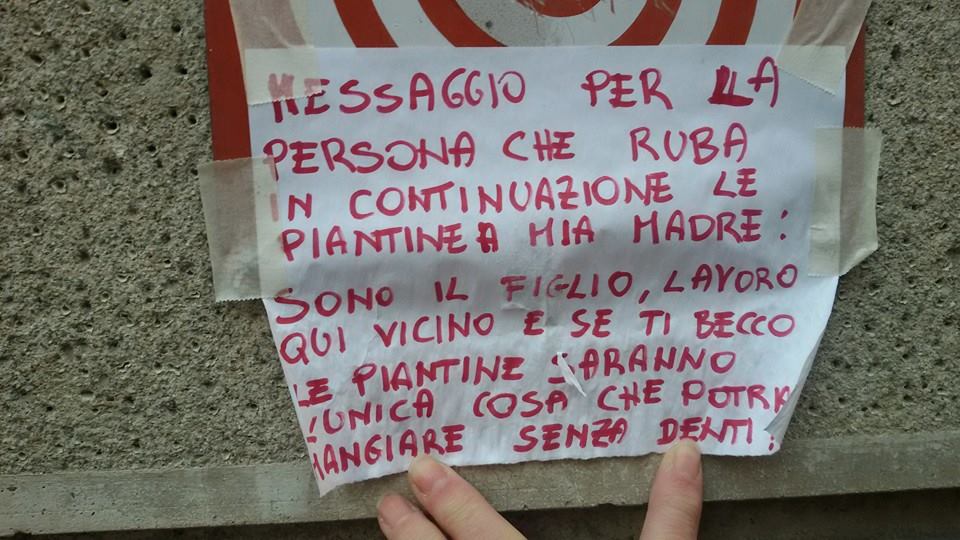 MESSAGGIO PER LA
PERSONA CHE RUBA
IN CONTINUAZIONE LE
PIANTINE A MIA MADRE:
SONO IL FIGLIO, LAVORO
QUI VICINO E SE TI BECCO
LE PIANTINE SARANNO
L'UNICA COSA CHE POTRAI
MANGIARE SENZA DENTI!